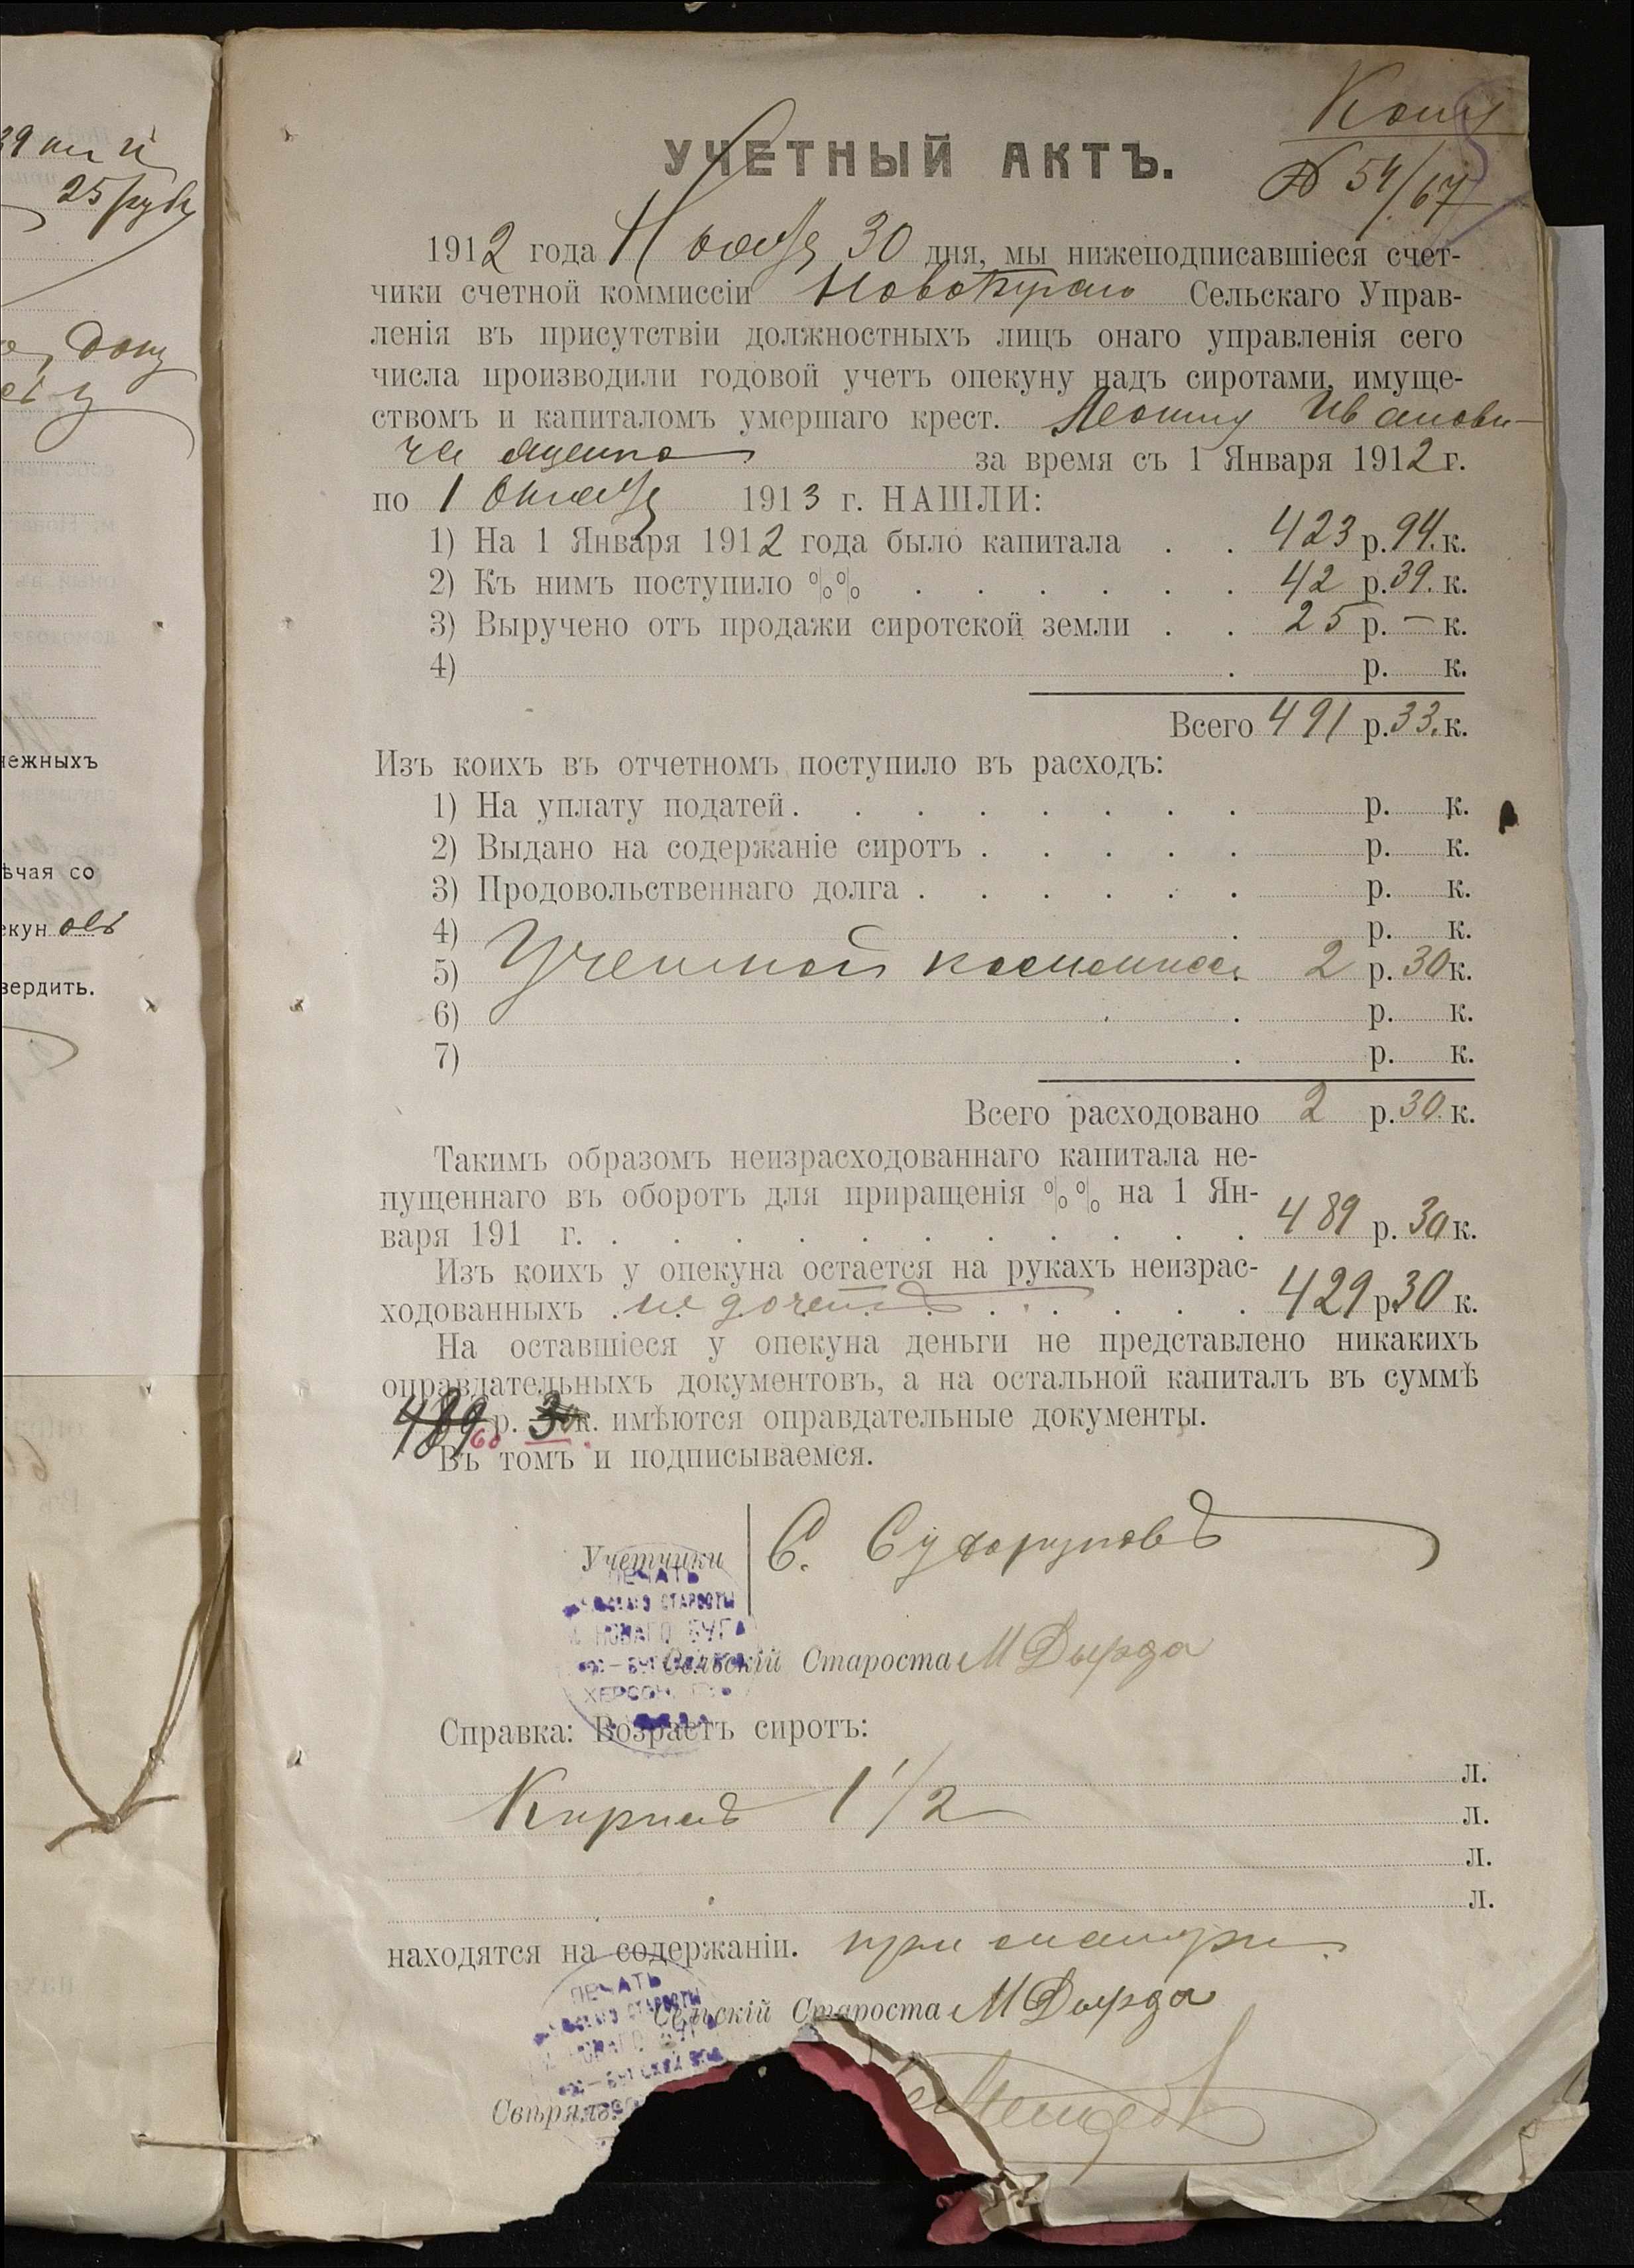 39 ки и
25 руб
нежныхъ
ѣчая со
екун овъ
вердить.
Копія
УЧЕТНЫЙ АКТЪ.
№ 54/67
1912 года Ноября 30 дня, мы нижеподписавшіеся счет-
чики счетной коммиссіи Сельскаго Управ-
ленія въ присутствіи должностныхъ лицъ онаго управленія сего
числа производили годовой учетъ опекуну надъ сиротами, имуще-
ствомъ и капиталомъ умершаго крест. Иванови-
ча за время съ 1 Января 1912 г.
по 1 Октября 1913 г. НАШЛИ:
1) На 1 Января 1912 года было капитала . . 423 р. 94 к.
2) Къ нимъ поступило %% . . . . . . 42 р. 39 к.
3) Выручено отъ продажи сиротской земли . . 25 р. — к.
4) . р. к.
Всего 491 р. 33 к.
Изъ коихъ въ отчетномъ поступило въ расходъ:
1) На уплату податей . . . . . . . . р. к.
2) Выдано на содержаніе сиротъ . . . . . р. к.
3) Продовольственнаго долга . . . . . . р. к.
4) . р. к.
5) Учетной коммисси 2 р. 30 к.
6) . р. к.
7) . р. к.
Всего расходовано 2 р. 30 к.
Такимъ образомъ неизрасходованнаго капитала не-
пущеннаго въ оборотъ для приращенія %% на 1 Ян-
варя 191 г. . . . . . . . . . . . 489 р. 30 к.
Изъ коихъ у опекуна остается на рукахъ неизрас-
ходованныхъ . недочетъ . . . . . 429 р. 30 к.
На оставшіеся у опекуна деньги не представлено никакихъ
оправдательныхъ документовъ, а на остальной капиталъ въ суммѣ
489 60 р. 30 к. имѣются оправдательные документы.
Въ томъ и подписываемся.
Учетчики С. Сухоруковъ
ПЕЧАТЬ
СТАРОСТЫ
НОВАГО БУГА
ХЕРСОН.
Сельскій Староста М Дырда
Справка: Возрастъ сиротъ:
л.
Кирилъ 1 1/2 л.
л.
л.
находятся на содержаніи. при матери.
ПЕЧАТЬ
СТАРОСТЫ
Сельскій Староста М Дырда
Свѣрялъ